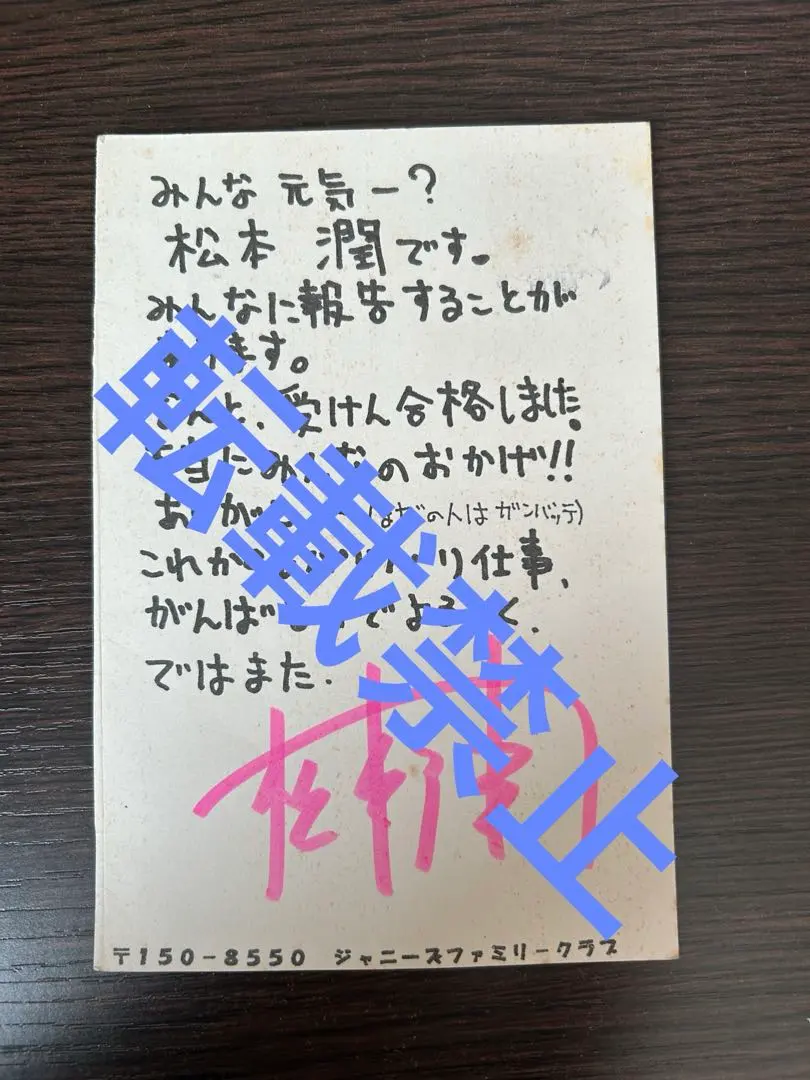 みんな 元気ー?
松本 潤です。
みんなに報告することが
ます。
と、受けん合格しました。
みんなのおかげ!!
(まだの人はガンバッテ)
これか り仕事、
がんば でよろ く、
ではまた.
松本潤
〒150-8550 ジャニーズファミリークラブ
転載禁止